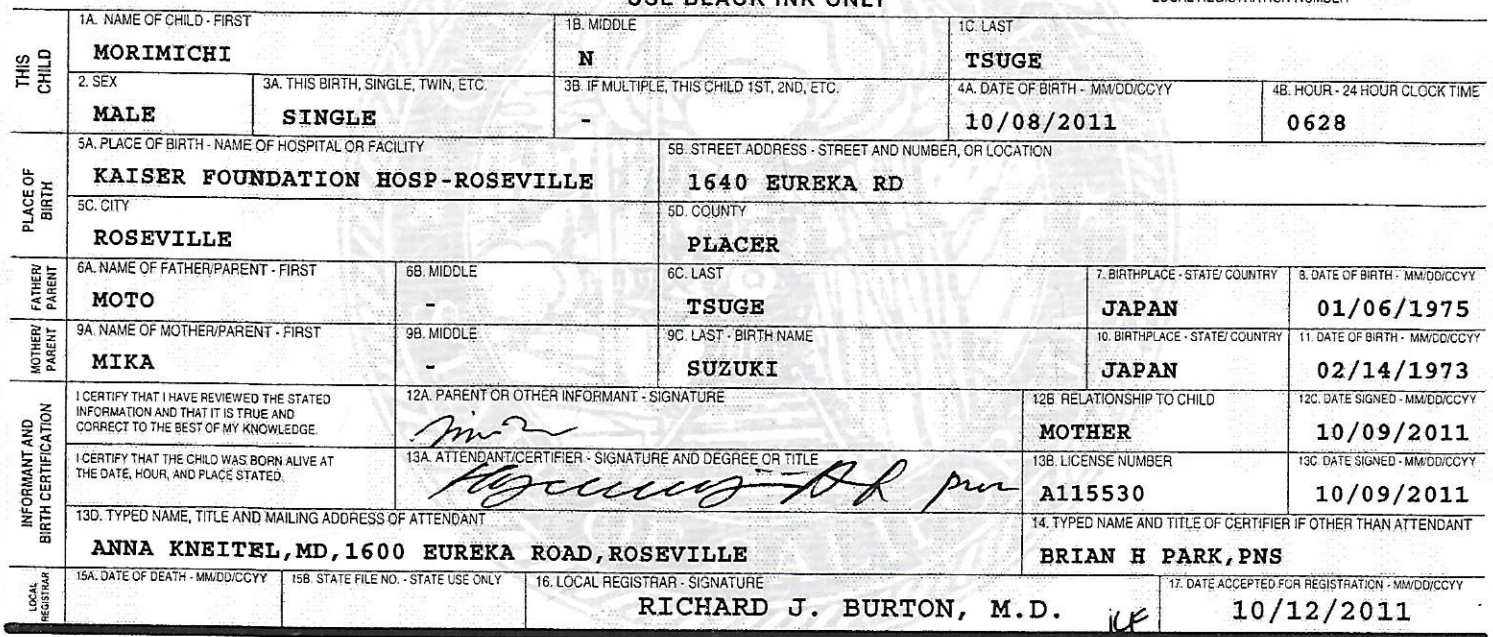 USE BLACK INK ONLY
LOCAL REGISTRATION NUMBER
THIS CHILD
1A. NAME OF CHILD - FIRST
MORIMICHI
1B. MIDDLE
N
1C. LAST
TSUGE
2. SEX
MALE
3A. THIS BIRTH, SINGLE, TWIN, ETC.
SINGLE
3B. IF MULTIPLE, THIS CHILD 1ST, 2ND, ETC.
-
4A. DATE OF BIRTH - MM/DD/CCYY
10/08/2011
4B. HOUR - 24 HOUR CLOCK TIME
0628
PLACE OF BIRTH
5A. PLACE OF BIRTH - NAME OF HOSPITAL OR FACILITY
KAISER FOUNDATION HOSP-ROSEVILLE
5B. STREET ADDRESS - STREET AND NUMBER, OR LOCATION
1640 EUREKA RD
5C. CITY
ROSEVILLE
5D. COUNTY
PLACER
FATHER/ PARENT
6A. NAME OF FATHER/PARENT - FIRST
MOTO
6B. MIDDLE
-
6C. LAST
TSUGE
7. BIRTHPLACE - STATE/ COUNTRY
JAPAN
8. DATE OF BIRTH - MM/DD/CCYY
01/06/1975
MOTHER/ PARENT
9A. NAME OF MOTHER/PARENT - FIRST
MIKA
9B. MIDDLE
-
9C. LAST - BIRTH NAME
SUZUKI
10. BIRTHPLACE - STATE/ COUNTRY
JAPAN
11. DATE OF BIRTH - MM/DD/CCYY
02/14/1973
INFORMANT AND BIRTH CERTIFICATION
I CERTIFY THAT I HAVE REVIEWED THE STATED
INFORMATION AND THAT IT IS TRUE AND
CORRECT TO THE BEST OF MY KNOWLEDGE.
12A. PARENT OR OTHER INFORMANT - SIGNATURE
12B RELATIONSHIP TO CHILD
MOTHER
12C. DATE SIGNED - MM/DD/CCYY
10/09/2011
I CERTIFY THAT THE CHILD WAS BORN ALIVE AT
THE DATE, HOUR, AND PLACE STATED.
13A. ATTENDANT/CERTIFIER - SIGNATURE AND DEGREE OR TITLE
13B. LICENSE NUMBER
A115530
13C. DATE SIGNED - MM/DD/CCYY
10/09/2011
13D. TYPED NAME, TITLE AND MAILING ADDRESS OF ATTENDANT
ANNA KNEITEL,MD,1600 EUREKA ROAD,ROSEVILLE
14. TYPED NAME AND TITLE OF CERTIFIER IF OTHER THAN ATTENDANT
BRIAN H PARK,PNS
LOCAL REGISTRAR
15A. DATE OF DEATH - MM/DD/CCYY
15B. STATE FILE NO. - STATE USE ONLY
16. LOCAL REGISTRAR - SIGNATURE
RICHARD J. BURTON, M.D.
17. DATE ACCEPTED FOR REGISTRATION - MM/DD/CCYY
10/12/2011